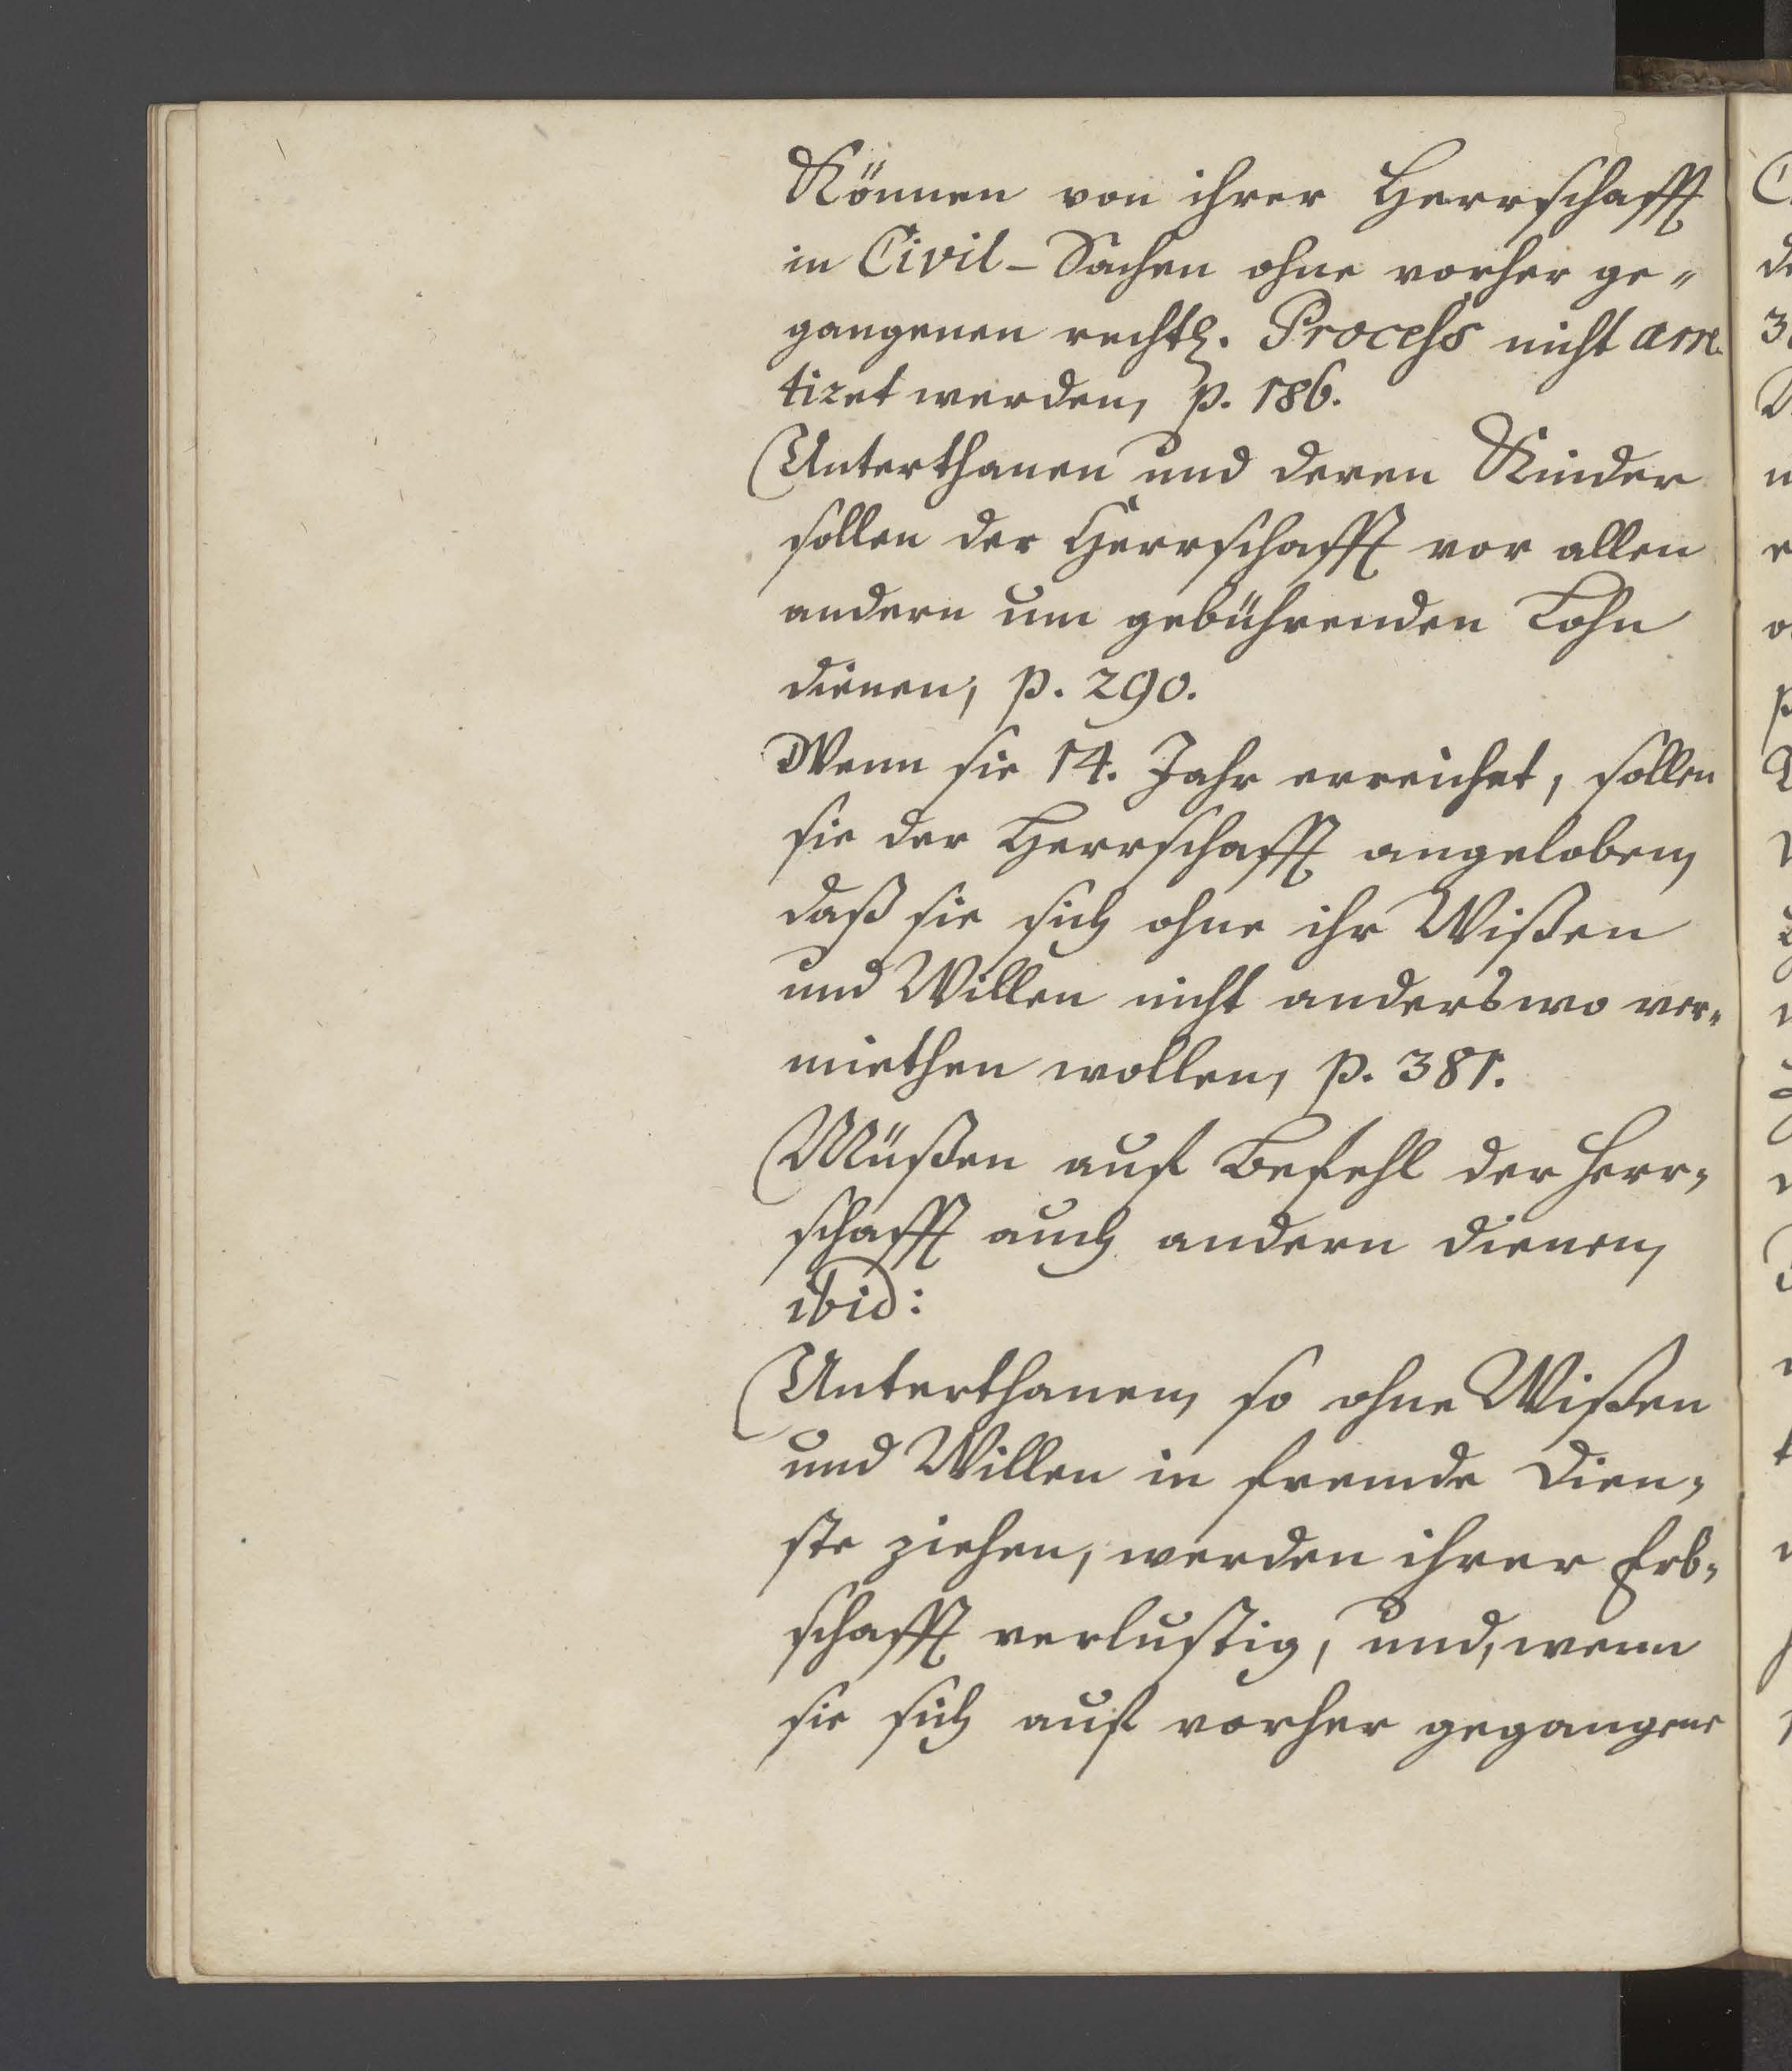 Können von ihrer Herrschafft
in Civil-Sachen ohne vorher ge„
gangenen rechtl. Process nicht arre
tiret werden, p. 186.
Unterthanen und deren Kinder
sollen der Herrschafft vor allen
andern um gebührenden Lohn
dienen, p. 290.
Wenn sie 14. Jahr erreichet, sollen
sie der Herrschafft angeloben,
daß sie sich ohne ihr Wißen
und Willen nicht anderswo ver„
miethen wollen, p. 381.
Müßen auf Befehl der Herr„
schafft auch andern dienen,
ibid:
Unterthanen, so ohne Wißen
und Willen in fremde Dien„
ste ziehen, werden ihrer Erb„
schafft verlustig, und, wenn
sie sich auf vorher gegangene